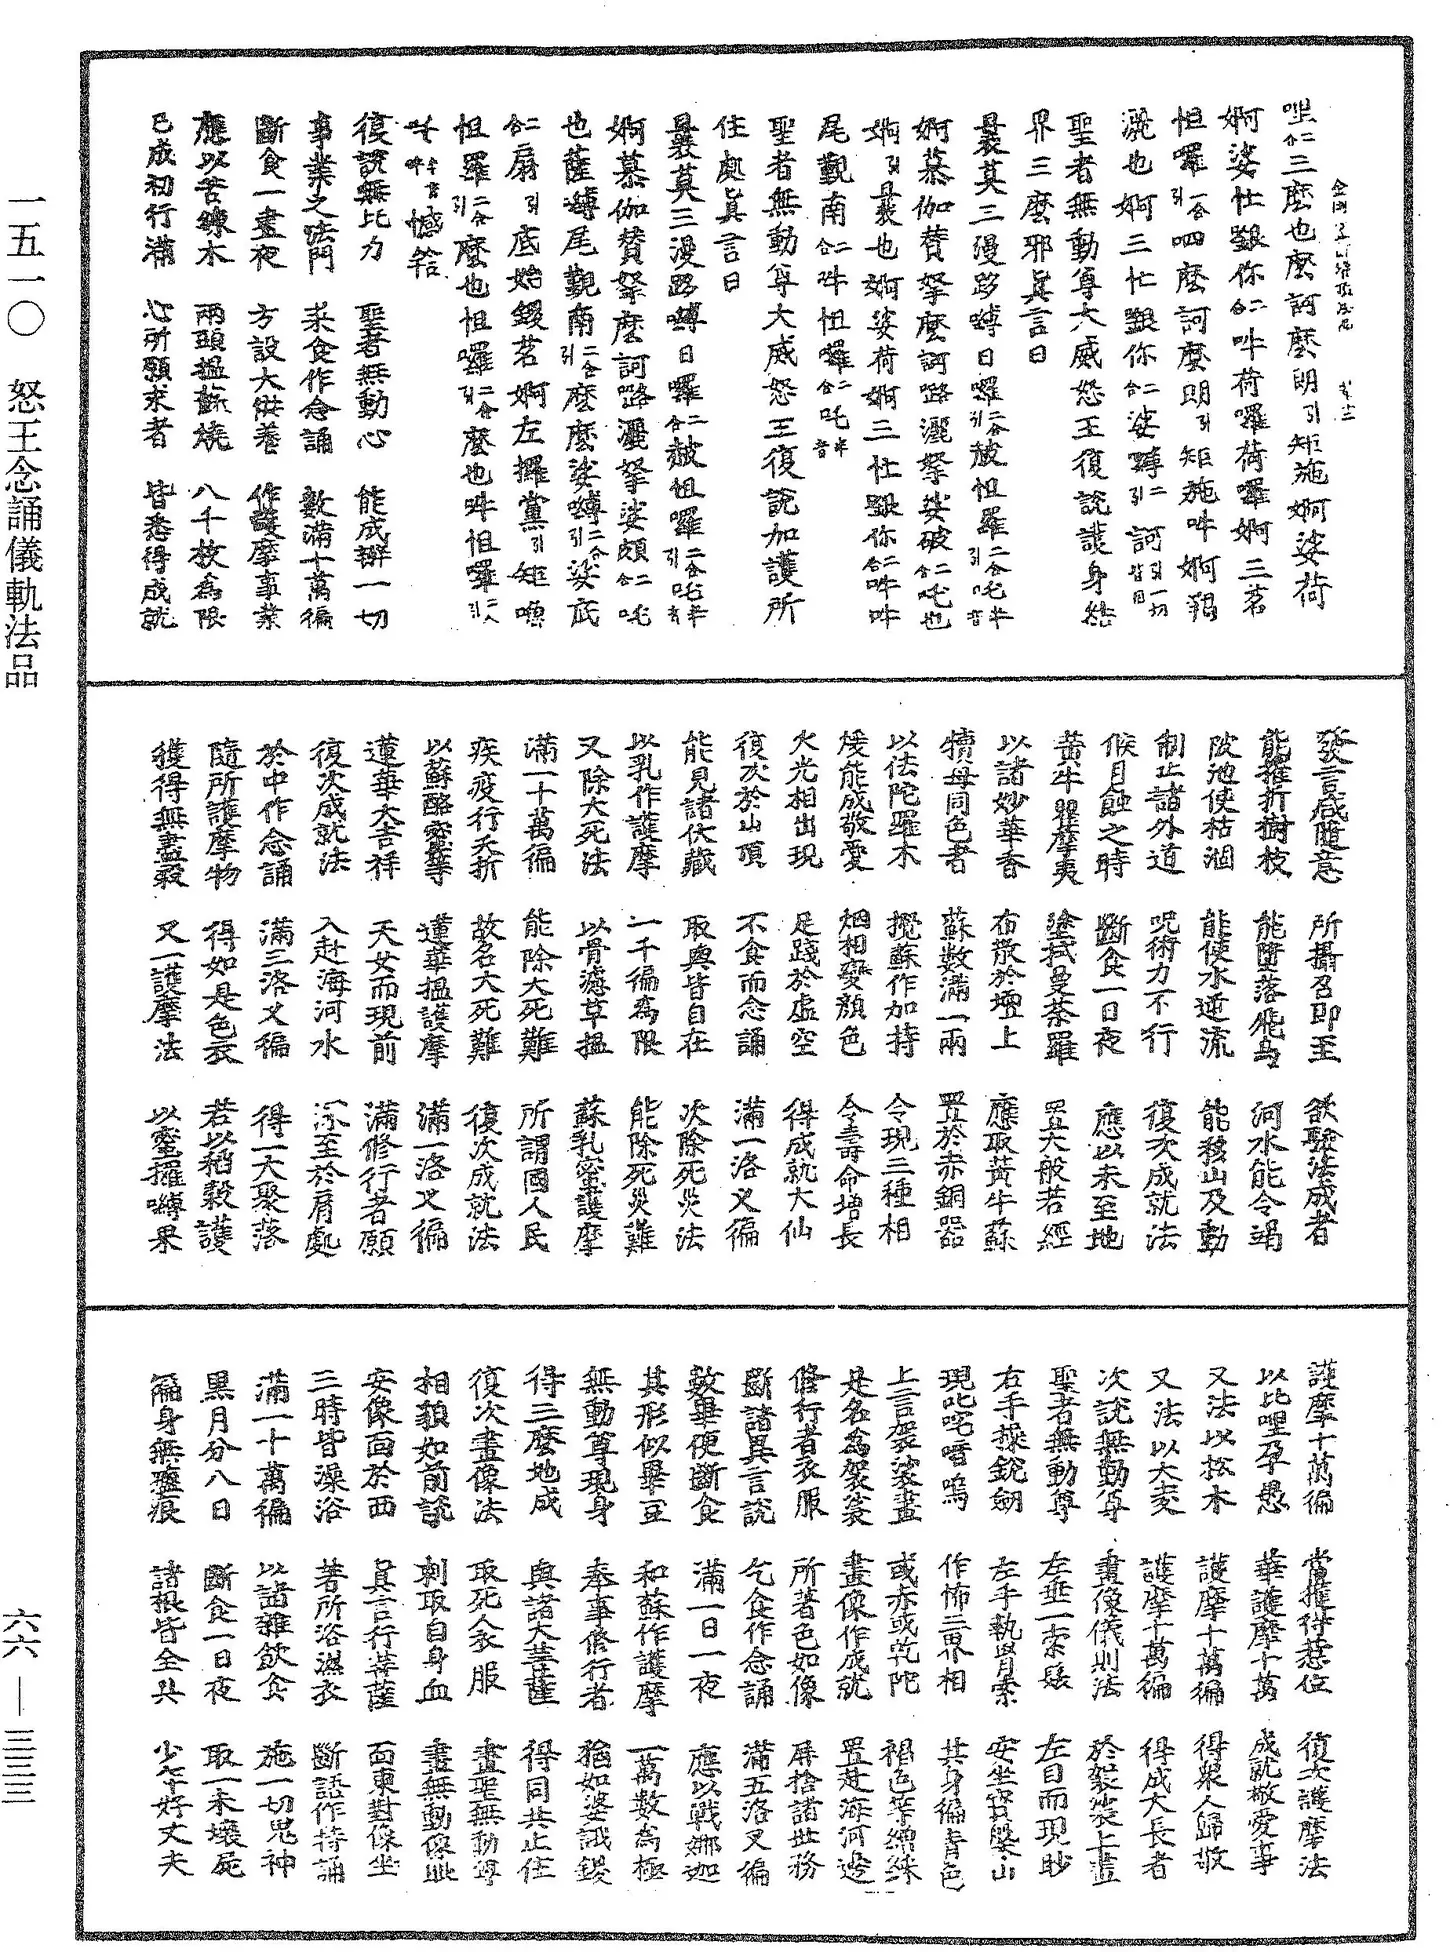 一五一〇　怒王念誦儀軌法品
六六—三三三
𠷈二合三麼也麼訶麼朗引矩施婀娑荷
婀娑仕䫂你二合吽荷囉荷囉婀三茗
怛囉引二合呬麼訶麼朗引矩施吽婀羯
灑也婀三忙䫂你二合娑嚩二引訶引
聖者無動尊大威怒王復說護身結
界三麼邪真言曰
曩莫三漫跢嚩日囉二合赧怛囉二合吒半音
婀慕伽贊拏麼訶路灑拏娑破二合吒也
婀引曩也婀娑荷婀三忙䫂你二合吽吽
尾覲南二合吽怛囉二合吒半音
聖者無動尊大威怒王復說加護所
住處真言曰
曩莫三漫跢嚩日囉二合赧怛囉二合引吒半音
婀慕伽贊拏麼訶路灑拏娑頗二合吒
也薩嚩尾覲南引二合麼麼娑嚩引二合娑底
二合扇引底始鑁茗婀左攞黨引矩嚕
怛囉二合引麼也怛囉二合引麼也吽怛囉二合
吒半音憾𤚥
復說無比力　聖者無動心　能成辦一切
事業之法門　菜食作念誦　數滿十萬徧
斷食一晝夜　方設大供養　作護摩事業
應以苦練木　兩頭搵蘇燒　八千枚為限
已成初行滿　心所願求者　皆悉得成就
發言咸隨意　所攝召即至　欲驗法成者
能摧折樹枝　能墮落飛鳥　河水能令竭
陂池使枯涸　能使水逆流　能移山及動
制止諸外道　呪術力不行　復次成就法
候月蝕之時　斷食一日夜　應以未至地
黃牛瞿摩夷　塗拭曼荼羅　置大般若經
以諸妙華香　布散於壇上　應取黃牛蘇
犢母同色者　蘇數滿一兩　置於赤銅器
以佉陀羅木　攪蘇作加持　令現三種相
煖能成敬愛　烟相變顏色　令壽命增長
火光相出現　足踐於虛空　得成就大仙
復次於山頂　不食而念誦　滿一洛叉徧
能見諸伏藏　取與皆自在　次除死災法
以乳作護摩　一千徧為限　能除死災難
又除大死法　以骨漊草搵　蘇乳蜜護摩
滿一十萬徧　能除大死難　所謂國人民
疾疫行夭折　故名大死難　復次成就法
以蘇酪蜜等　蓮華搵護摩　滿一洛叉徧
蓮華大吉祥　天女而現前　滿修行者願
復次成就法　入赴海河水　深至於肩處
於中作念誦　滿三洛叉徧　得一大聚落
隨所護摩物　得如是色衣　若以稻穀護
獲得無盡穀　又一護摩法　以蜜攞嚩果
護摩十萬徧　當獲得葸位　復次護摩法
以比哩孕愚　華護摩十萬　成就敬愛事
又法以松木　護摩十萬徧　得眾人歸敬
又法以大麥　護摩十萬徧　得成大長者
次說無動尊　畫像儀則法　於袈裟上畫
聖者無動尊　左垂一索髮　左目而現眇
右手操銳劒　左手執羂索　安坐寶盤山
現叱咤喑嗚　作怖三界相　其身徧青色
上言袈裟畫　或赤或乾陀　褐色等繒綵
是名為袈裟　畫像作成就　置赴海河邊
修行者衣服　所著色如像　屏捨諸世務
斷諸異言說　乞食作念誦　滿五洛叉徧
數畢便斷食　滿一日一夜　應以戰娜迦
其形似畢豆　和蘇作護摩　一萬數為極
無動尊現身　奉事修行者　猶如婆誐鍐
得三麼地成　與諸大菩薩　得同共止住
復次畫像法　取死人衣服　畫聖無動尊
相貌如前說　刺取自身血　畫無動像些
安像面於西　真言行菩薩　面東對像坐
三時皆澡浴　著所浴濕衣　斷語作持誦
滿一十萬徧　以諸雜飲食　施一切鬼神
黑月分八日　斷食一日夜　取一未壞屍
徧身無瘢痕　諸根皆全具　少年好丈夫